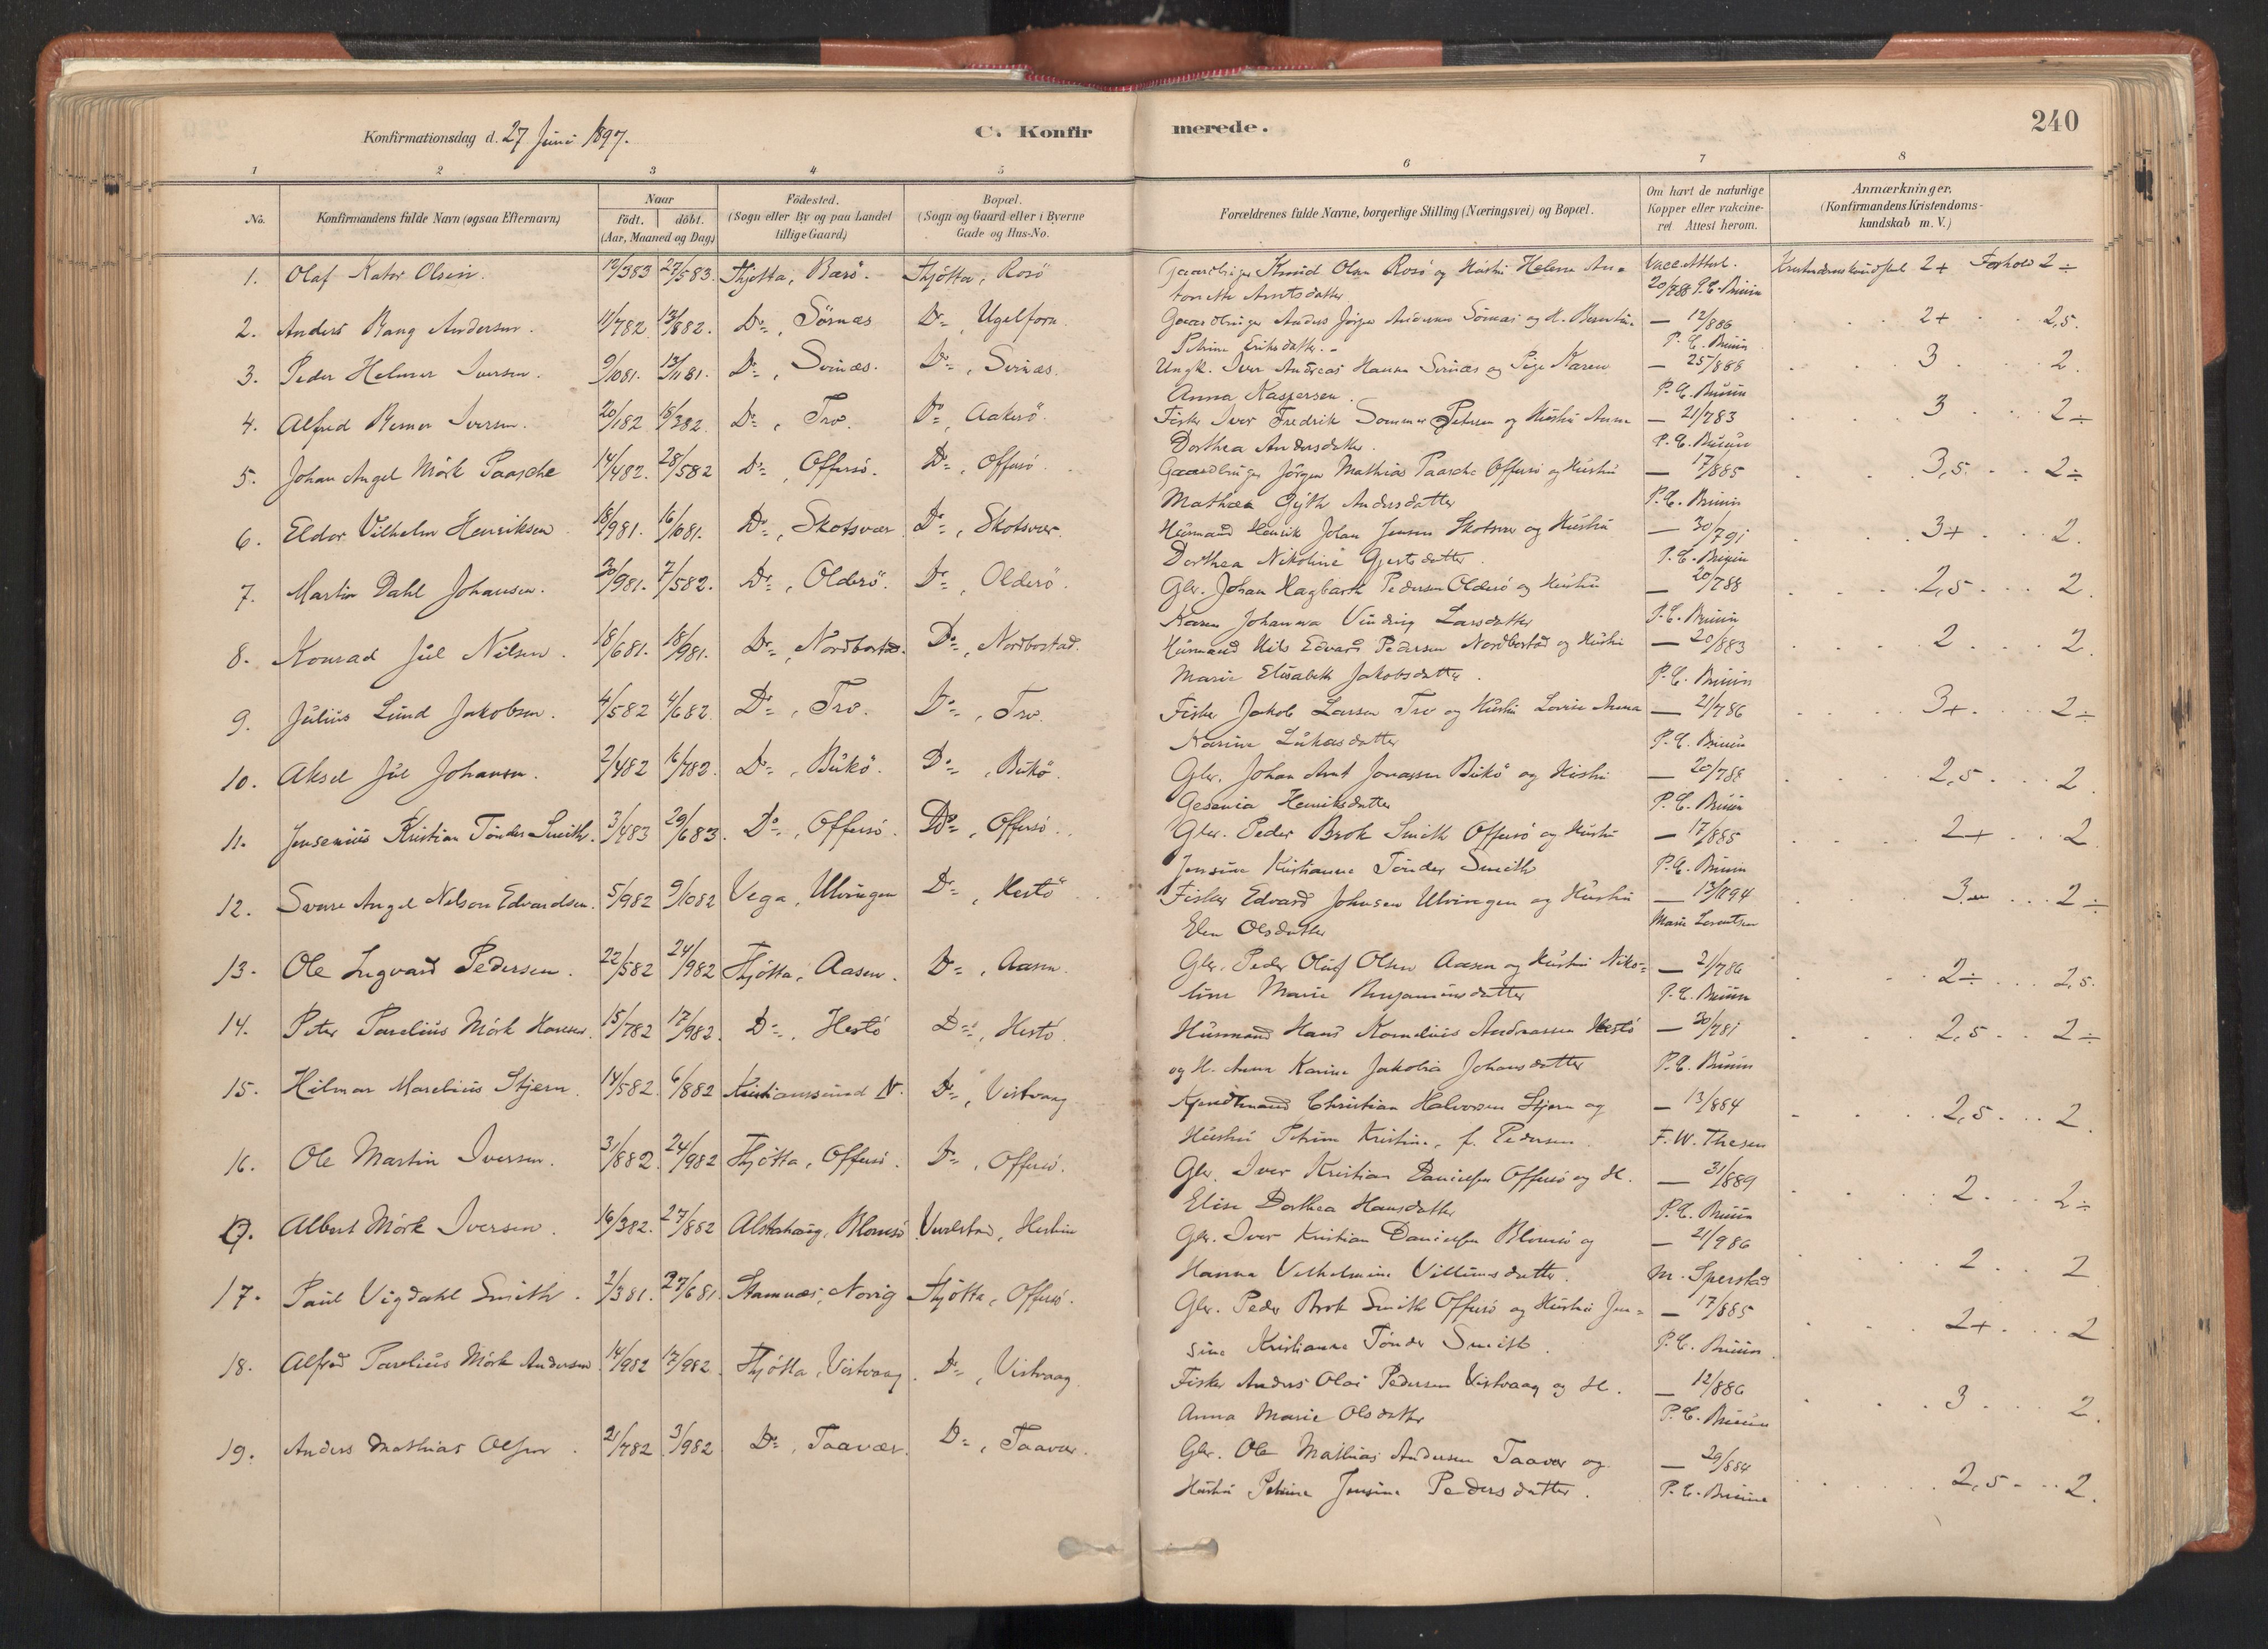 240
Konfirmationsdag d. 27 Juni 1897.
C. Konfirmerede.
1 2 3 4 5 6 7 8
No. Konfirmandens fulde Navn (ogsaa Efternavn) Naar födt. döbt. (Aar, Maaned og Dag.) Födested. (Sogn eller By og paa Landet tillige Gaard.) Bopæl. (Sogn og Gaard eller i Byerne Gade og Hus-No. Forældrenes fulde Navne, borgerlige Stilling (Næringsvei) og Bopæl. Om havt de naturlige Kopper eller vakcineret Attest herom. Anmærkninger, (Konfirmandens Kristendomskundskab m. V.)
1. Olaf Kator Olsen. 12/383 27/583. Thjøtta, Rosö. Thjøtta, Rosö Gaardbruger Knud Olsen Rosö og Hustru Helene An= Vacc.Attest. 2+ Forhold 2÷
tonette Arntsdatter 20/788 P.C. Bruun
2. Anders Rang Andersen. 11/782 13/882. Do, Sörnæs Do, Ugelforn Gaardbruger Anders Jörgen Andersen Sörnæs og H. — 12/886 2+ 2,5.
Petrine Eriksdatter.- P. C. Bruun
3. Peder Helmer Iversen. 9/1081. 13/1181. Do, Svinæs. Do, Svinæs. Ungk. Iver Andreas Hansen Svinæs og Pige Karen — 25/888 3 2.
Anna Kaspersen. P. C. Bruun
4. Alfred Berner Iversen. 20/182 15/382. Do, Tro. Do, Aakerö. Fisker Iver Fredrik Sommer Petersen og Hustru Anna — 21/783 3 2÷
Dorthea Andersdatter. P. C. Bruun
5. Johan Angel Mörk Paasche 14/482. 28/582 Do, Offersö. Do, Offersö. Gaardbruger Jörgen Mathias Paasche Offersö og Hustru — 17/885 3,5. 2÷
Mathea Gjth Andersdatter P. C. Bruun
6. Eldor Vilhelm Henriksen 18/981. 16/1081. Do, Skotsvær Do, Skotsvær. Husmand Henrik Johan Jensen Skotsvær og Hustru — 30/791 3+ 2.
Dorthea Nikoline Gjertsdatter. P. C. Bruun
7. Martin Dahl Johansen. 30/981. 7/582. Do, Olderö. Do, Olderö. Gbr. Johan Hagbarth Pedersen Olderö og Hustru — 20/788 2,5 2.
Karen Johanna Vinding Larsdatter P. C. Bruun
8. Konrad Jul Nilsen. 18/681. 18/981. Do, Nordbostad. Do, Nordbostad. Husmand Nils Edvard Pedersen Nordbostad og Hustru — 20/883 2 2.
Marie Elisabeth Jakobsdatter. P. C. Bruun
9. Julius Lund Jakobsen. 4/582 4/682. Do, Tro. Do, Tro. Fisker Jakob Larsen Tro og Hustru Lovise Anna — 21/786 3+ 2÷
Karine Lukasdatter P. C. Bruun
10. Aksel Jul Johansen. 2/482 16/782. Do, Bukö. Do, Bukö. Gbr. Johan Arnt Jonassen Bukö og Hustru — 20/788 2,5 2.
Gesenia Henriksdatter P. C. Bruun
11. Jensenius Kristian Tönder Smith. 3/483 29/683. Do, Offersö. Do, Offersö. Gbr. Peder Brok Smith Offersö og Hustru — 17/885 2+ 2
Jensine Kristianne Tönder Smith P. C. Bruun
12. Svare Angel Nelson Edvardsen. 5/982 9/1082 Vega, Ulvingen Do, Hestö Fisker Edvard Johnsen Ulvingen og Hustru 2÷
Elen Olsdatter Marie Lorentsen
13. Ole Ingvard Pedersen. 22/582 24/982 Thjøtta, Aasen. Do, Aasen. Gbr. Peder Oluf Olsen Aasen og Hustru Niko= — 21/786 2÷ 2,5.
line Marie Benjaminsdatter P. C. Bruun
14. Peter Parelius Mörk Hansen. 15/782 17/982. Do, Hestö Do, Hestö. Husmand Hans Kornelius Andreassen Hestö — 30/781 2,5 2÷
og H. Anna Karine Jakobia Johansdatter P. C. Bruun
15. Hilmar Marelius Stjern 14/582. 6/882 Kristianssund N. Do, Vistvaag Christian Halvorsen Stjern og — 13/884 2,5 2.
Hustru Petrine Kristine, f. Pedersen. F. W. Thesen
16. Ole Martin Iversen. 31/882. 24/982 Thjøtta, Offersö. Do, Offersö. Gbr. Iver Kristian Danielsen Offersö og H. — 31/889 2 2÷
Elise Dorthea Hansdatter P. C. Bruun
Albert Mörk Iversen. 16/382. 27/882 Alstahaug, Blomsö Gbr. Iver Kristian Danielsen Blomsö og — 21/986 2 2
Hanna Vilhelmine Villumsdatter. M. Sperstad
17. Paul Vigdahl Smith. 2/381. 27/681. Stamnæs, Norvig Thjøtta, Offersö. Gbr. Peder Brok Smith Offersö og Hustru Jen= — 17/885 2+ 2
sine Kristianne Tönder Smith. P. C. Bruun.
18. Alfred Parelius Mörk Andersen 14/982 17/982. Thjøtta, Vistvaag. Do, Vistvaag. Fisker Anders Olai Pedersen Vistvaag og H. — 12/886 3 2.
Anna Marie Olsdatter P. C. Bruun
19. Anders Mathias Olsen. 21/782 3/982. Do, Taavær. Do, Taavær. Gbr. Ole Mathias Andersen Taavær og — 29/884 2,5 2.
Hustru Petrine Jensine Pedersdatter. P. C. Bruun